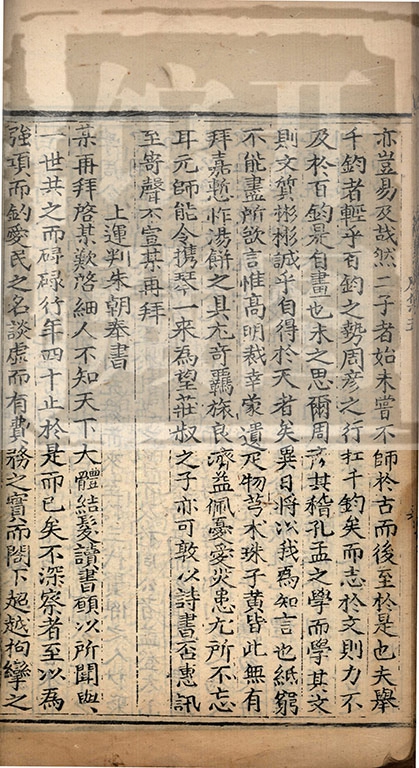 亦豈易及哉然二子者始未嘗不師於古而後至於是也夫舉
千鈞者輕乎百鈞之勢周彦之行扛千鈞矣而志於文則力不
及於百鈞是自畫也未之思爾周彦其稽孔孟之學而學其文
則文質彬彬誠乎自得於天者矣異日將以我爲知言也紙窮
不能盡所欲言惟高明裁幸蒙遺疋物芎朮珠子黃皆此無有
拜嘉慙怍湯餅之具尤奇羈旅良濟益佩憂愛災患尤所不忘
耳元師能令携琴一來為望莊叔之子亦可敦以詩書否惠訊
至寄聲不宣某再拜
上運判朱朝奉書
某再拜啓某歎啓細人不知天下大體結髮讀書頗以所聞與
一世共之而碍碌行年四十止於是而已矣不深察者至以為
強項而釣愛民之名談虛而有費務之實而閤下超越拘攣之